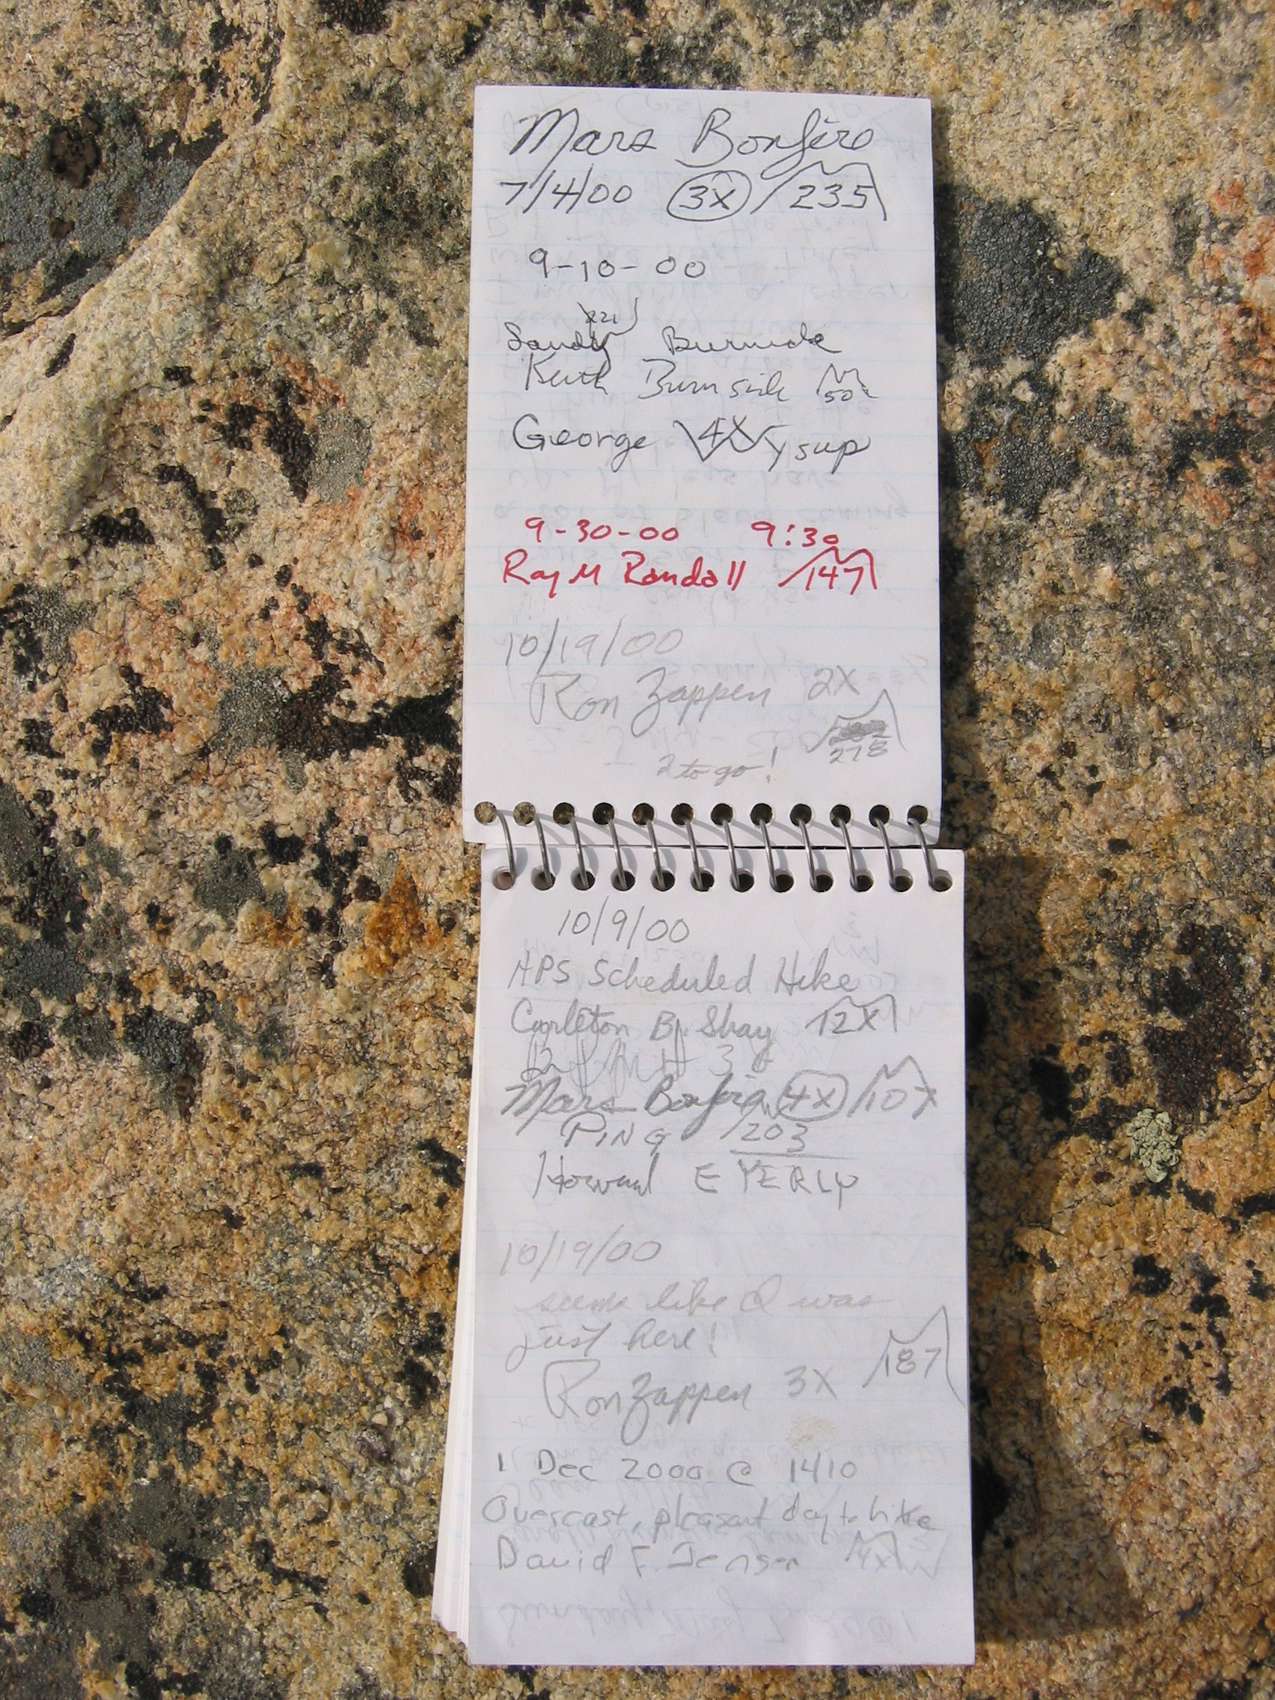 Mars Bonfire
7/4/00 3X 235
9-10-00
Sandy Burnside
Keith Burnside 50
George 4X ysup
9-30-00 9:30
Ray M Randall 147
10/19/00
Ron Zappen 2X
278
2 to go!
10/9/00
HPS Scheduled Hike
Carleton B. Shay 12X
Mars Bonfire 4X 107
PING 203
Howard EYERLY
10/19/00
seems like I was
just here!
187
Ron Zappen 3X
1 Dec 2000 @ 1410
Overcast, pleasant day to hike
David F. Jensen 4X